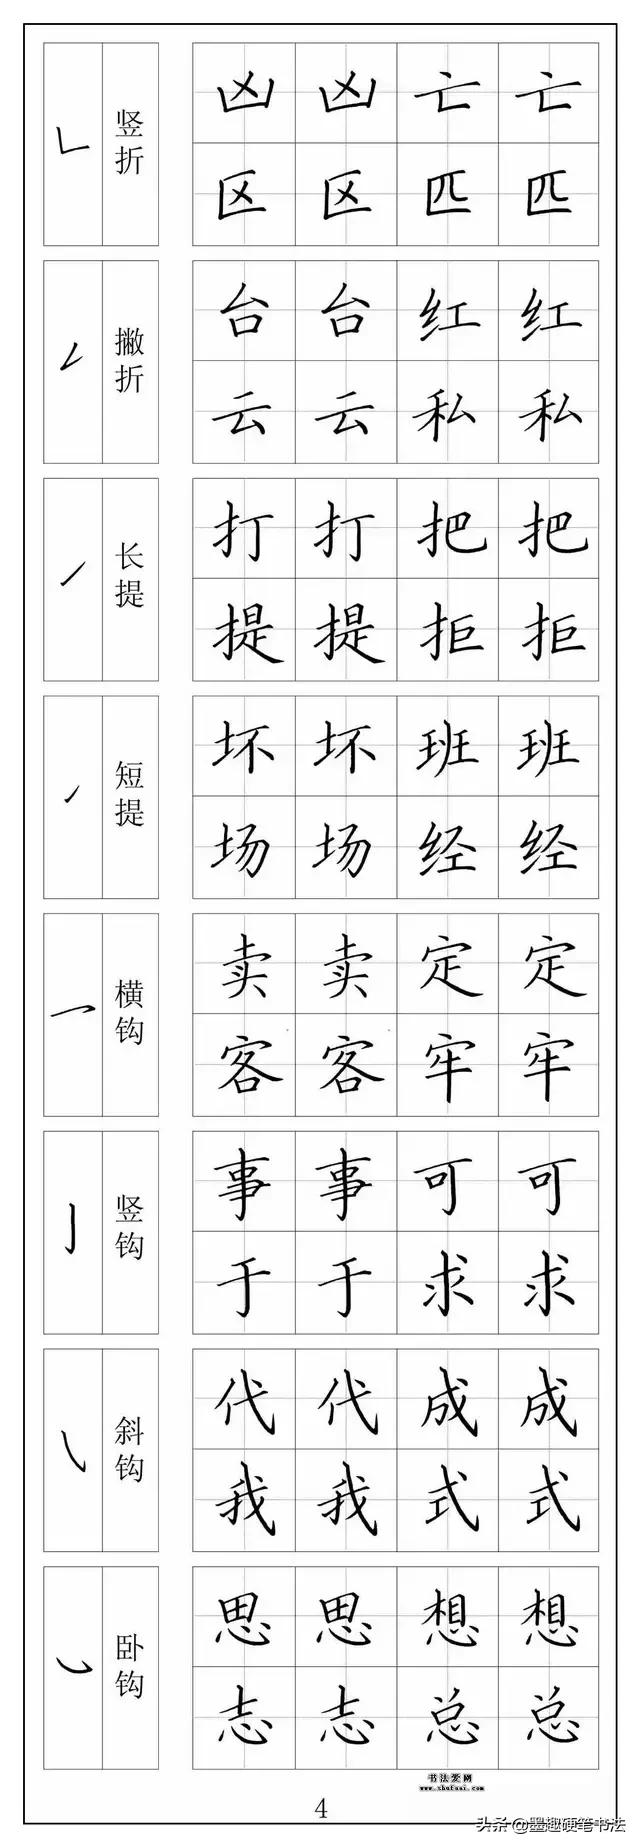 竖折
凶 凶 亡 亡
区 区 匹 匹
撇折
台 台 红 红
云 云 私 私
长提
打 打 把 把
提 提 拒 拒
短提
坏 坏 班 班
场 场 经 经
横钩
卖 卖 定 定
客 客 牢 牢
竖钩
事 事 可 可
于 于 求 求
斜钩
代 代 成 成
我 我 式 式
卧钩
思 思 想 想
志 志 总 总
书法爱网
www.shufaai.com
4
头条@墨趣硬笔书法